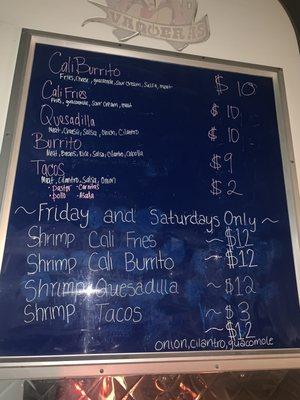 VAQUERAS
Cali Burrito $10
Fries, Cheese, guacamole, sour cream, Salsa, meat
Cali Fries $10
Fries, guacamole, sour cream, meat
Quesadilla $10
Meat, Cheese, Salsa, Onion, Cilantro
Burrito $9
Meat, Beans, Rice, Salsa, Cilantro, Cebolla
Tacos $2
Meat, Cilantro, Salsa, Onion
-Pastor -Carnitas
-Pollo -Asada
~Friday and Saturdays Only~
Shrimp Cali Fries ~$12
Shrimp Cali Burrito ~$12
Shrimp Quesadilla ~$12
Shrimp Tacos ~$3
~$12
onion, cilantro, guacomole